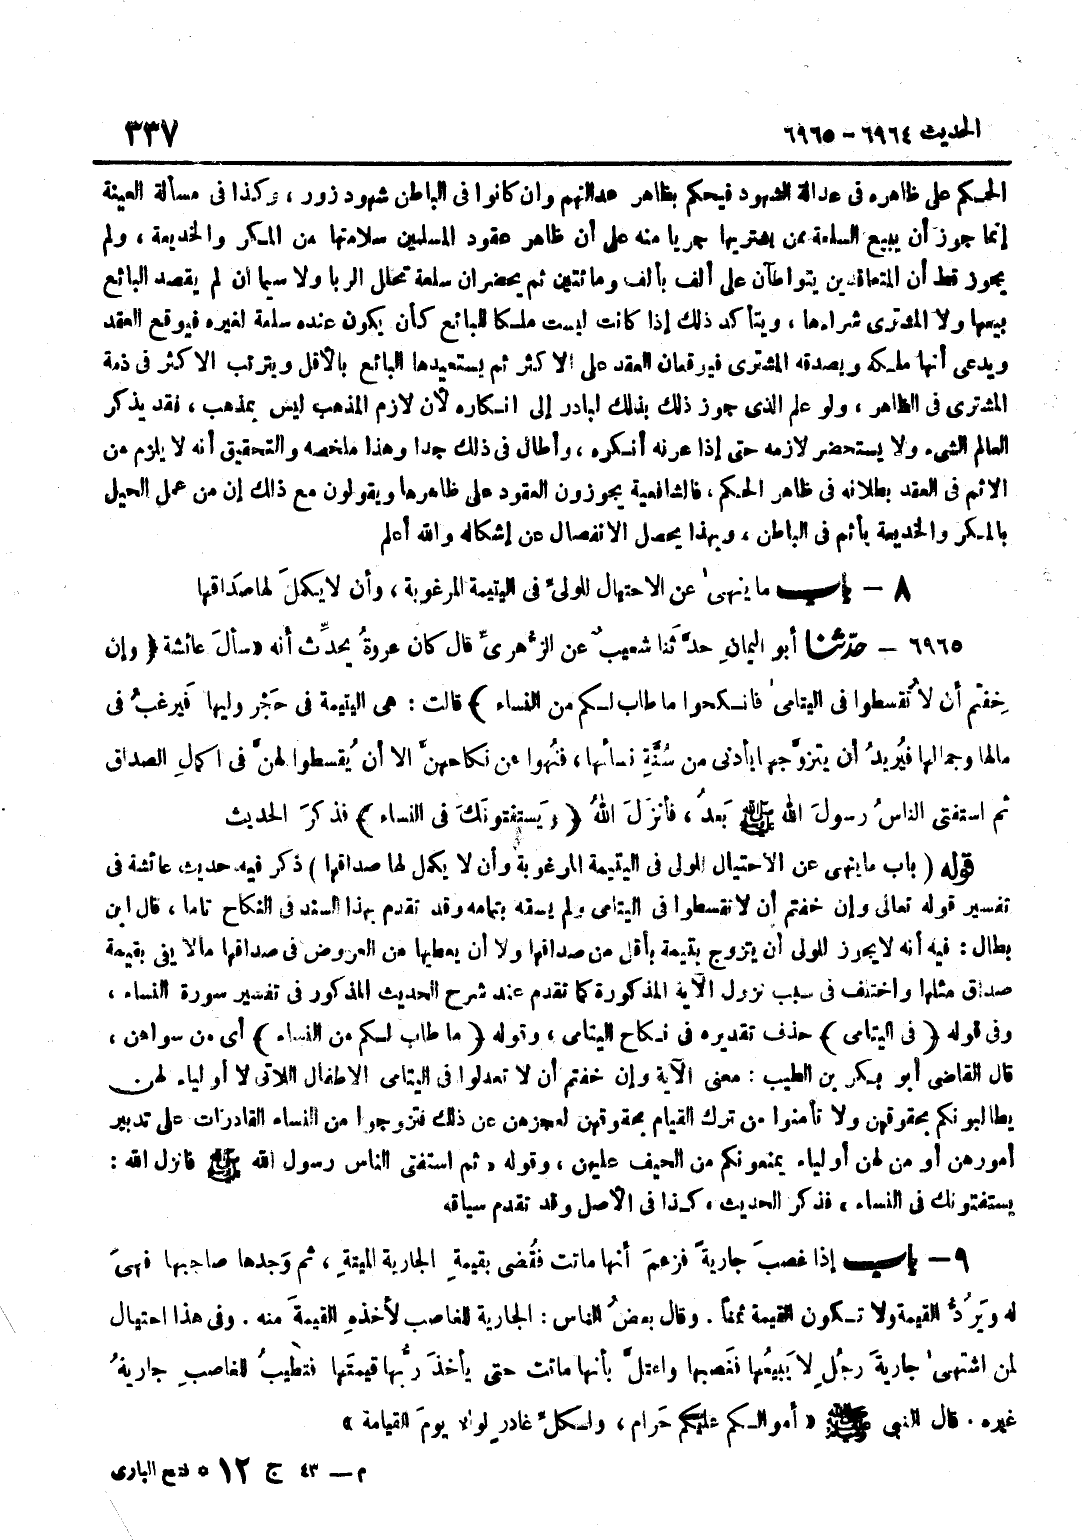 الحديث ٦٩٦٤ - ٦٩٦٥
٣٣٧
الحكم على ظاهره فى عدالة الشهود فيحكم بظاهر عدالتهم وان كانوا فى الباطن شهود زور ، وكذا فى مسألة العينة
إنما جوز أن يبيع السلعة ممن يشتريها جريا منه على أن ظاهر عقود المسلمين سلامتها من المكر والخديعة ، ولم
يجوز قط أن المتعاقدين يتواطآن على ألف بألف ومائتين ثم يحضران سلعة تحلل الربا ولا سيما ان لم يقصد البائع
بيعها ولا المشترى شراءها ، ويتأكد ذلك إذا كانت ليست ملكا للبائع كأن يكون عنده سلعة لغيره فيوقع العقد
ويدعى أنها ملكه ويصدقه المشترى فيرقعان العقد على الاكثر ثم يستعيدها البائع بالأقل ويترتب الاكثر فى ذمة
المشترى فى الظاهر ، ولو علم الذى جوز ذلك بذلك لبادر إلى انكاره لأن لازم المذهب ليس بمذهب ، فقد يذكر
العالم الشىء ولا يستحضر لازمه حتى إذا عرفه أنكره ، وأطال فى ذلك جدا وهذا ملخصه والتحقيق أنه لا يلزم من
الاثم فى العقد بطلانه فى ظاهر الحكم ، فالشافعية يجوزون العقود على ظاهرها ويقولون مع ذلك إن من عمل الحيل
بالمكر والخديعة يأثم فى الباطن ، وبهذا يحصل الانفصال عن إشكاله والله أعلم
٨ - باب ما ينهى عن الاحتيال للولىّ فى اليتيمة المرغوبة ، وأن لا يكملَ لها صَداقها
٦٩٦٥ - حدّثنا أبو اليمانِ حدَّثَنا شعيبٌ عن الزُّهرىِّ قال كان عروةُ يحدِّث أنه « سألَ عائشة ﴿ وإن
خِفتُم أن لا تُقسطوا فى اليتامىٰ فانكحوا ما طاب لكم من النساء ﴾ قالت : هى اليتيمة فى حَجْرِ وليها فَيرغبُ فى
مالها وجمالها فيُريدُ أن يتزوَّجها بأدنى من سُنَّةِ نسائها ، فنُهوا عن نكاحهنَّ الا أن يُقسطوا لهنَّ فى اكمالِ الصداق
ثم استفتى الناسُ رسولَ الله ﷺ بَعدُ ، فأنزَلَ اللهُ ﴿ ويَستفتونَكَ فى النساء ﴾ فذكرَ الحديث
قوله ( باب ما ينهى عن الاحتيال للولى فى اليتيمة المرغوبة وأن لا يكمل لها صداقها ) ذكر فيه حديث عائشة فى
تفسير قوله تعالى وإن خفتم أن لا تقسطوا فى اليتامى ولم يسقه بتمامه وقد تقدم بهذا السند فى النكاح تاما ، قال ابن
بطال : فيه أنه لا يجوز للولى أن يتزوج يتيمة بأقل من صداقها ولا أن يعطيها من العروض فى صداقها مالا يفى بقيمة
صداق مثلها واختلف فى سبب نزول الآية المذكورة كما تقدم عند شرح الحديث المذكور فى تفسير سورة النساء ،
وفى قوله ﴿ فى اليتامى ﴾ حذف تقديره فى نكاح اليتامى ، وقوله ﴿ ما طاب لكم من النساء ﴾ أى من سواهن ،
قال القاضى أبو بكر بن الطيب : معنى الآية وإن خفتم أن لا تعدلوا فى اليتامى الاطفال اللاتى لا أولياء لهن
يطالبونكم بحقوقهن ولا تأمنوا من ترك القيام بحقوقهن لعجزهن عن ذلك فتزوجوا من النساء القادرات على تدبير
أمورهن أو من لهن أولياء يمنعونكم من الحيف عليهن ، وقوله « ثم استفتى الناس رسول الله ﷺ فانزل الله :
يستفتونك فى النساء ، فذكر الحديث ، كذا فى الأصل وقد تقدم سياقه
٩ - باب إذا غصبَ جاريةً فزعمَ أنها ماتت فقُضى بقيمةِ الجارية الميتةِ ، ثم وَجدها صاحبها فهىَ
له ويَرُدُّ القيمة ولا تكون القيمة ثمناً . وقال بعضُ الناس : الجارية للغاصب لأخذهِ القيمةَ منه . وفى هذا احتيال
لمن اشتهىٰ جاريةَ رجُلٍ لا يَبيعُها فغَصبها واعتلَّ بأنها ماتت حتى يأخذَ ربُّها قيمتَها فتَطيبُ للغاصبِ جاريةُ
غيره . قال النبى ﷺ « أموالكم عليكم حَرام ، ولكلِّ غادرٍ لواء يومَ القيامة »
م - ٤٣ ج ١٢ ٥ فتح البارى